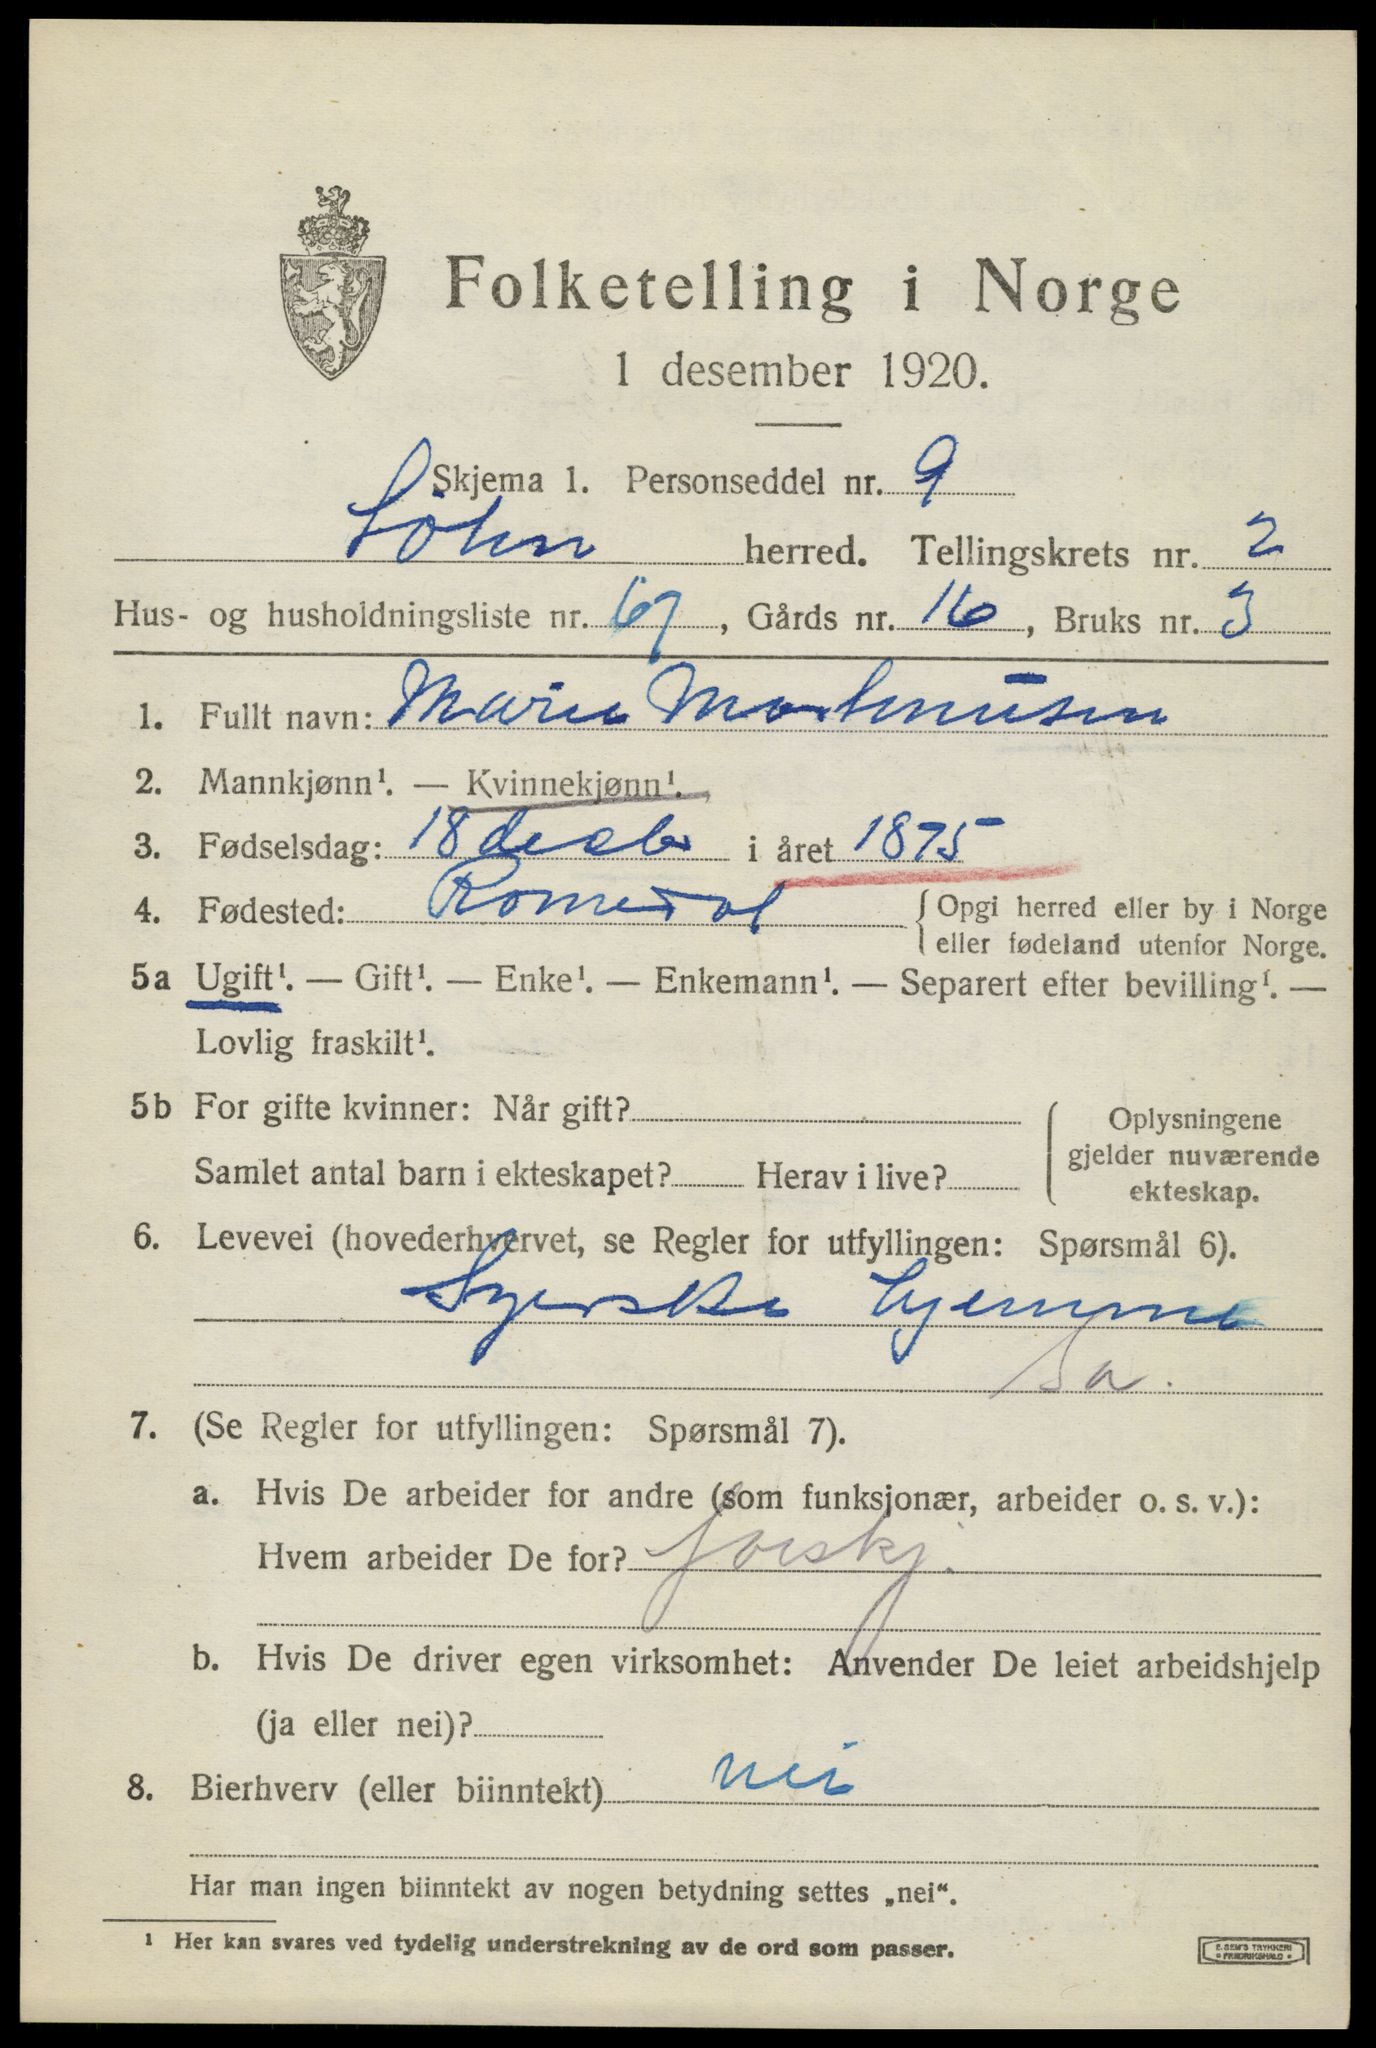 Folketelling i Norge
1 desember 1920.
Skjema 1. Personseddel nr. 9
Löten herred. Tellingskrets nr. 2
Hus- og husholdningsliste nr. 67, Gårds nr. 16, Bruks nr. 3
1. Fullt navn: Marie Martinusen
2. Mannkjønn¹. — Kvinnekjønn¹.
3. Fødselsdag: 18 decbr i året 1875
4. Fødested: Romedal {Opgi herred eller by i Norge
eller fødeland utenfor Norge.
5a Ugift¹. — Gift¹. — Enke¹. — Enkemann¹. — Separert efter bevilling¹. —
Lovlig fraskilt¹.
5b For gifte kvinner: Når gift?
Samlet antal barn i ekteskapet? Herav i live?
Oplysningene
gjelder nuværende
ekteskap.
6. Levevei (hovederhvervet, se Regler for utfyllingen: Spørsmål 6).
Syerske hjemme
Sa.
7. (Se Regler for utfyllingen: Spørsmål 7).
a. Hvis De arbeider for andre (som funksjonær, arbeider o. s. v.):
Hvem arbeider De for? forskj.
b. Hvis De driver egen virksomhet: Anvender De leiet arbeidshjelp
(ja eller nei)?
8. Bierhverv (eller biinntekt) nei
Har man ingen biinntekt av nogen betydning settes „nei“.
¹ Her kan svares ved tydelig understrekning av de ord som passer.
E. SEM'S TRYKKERI
FREDRIKSHALD